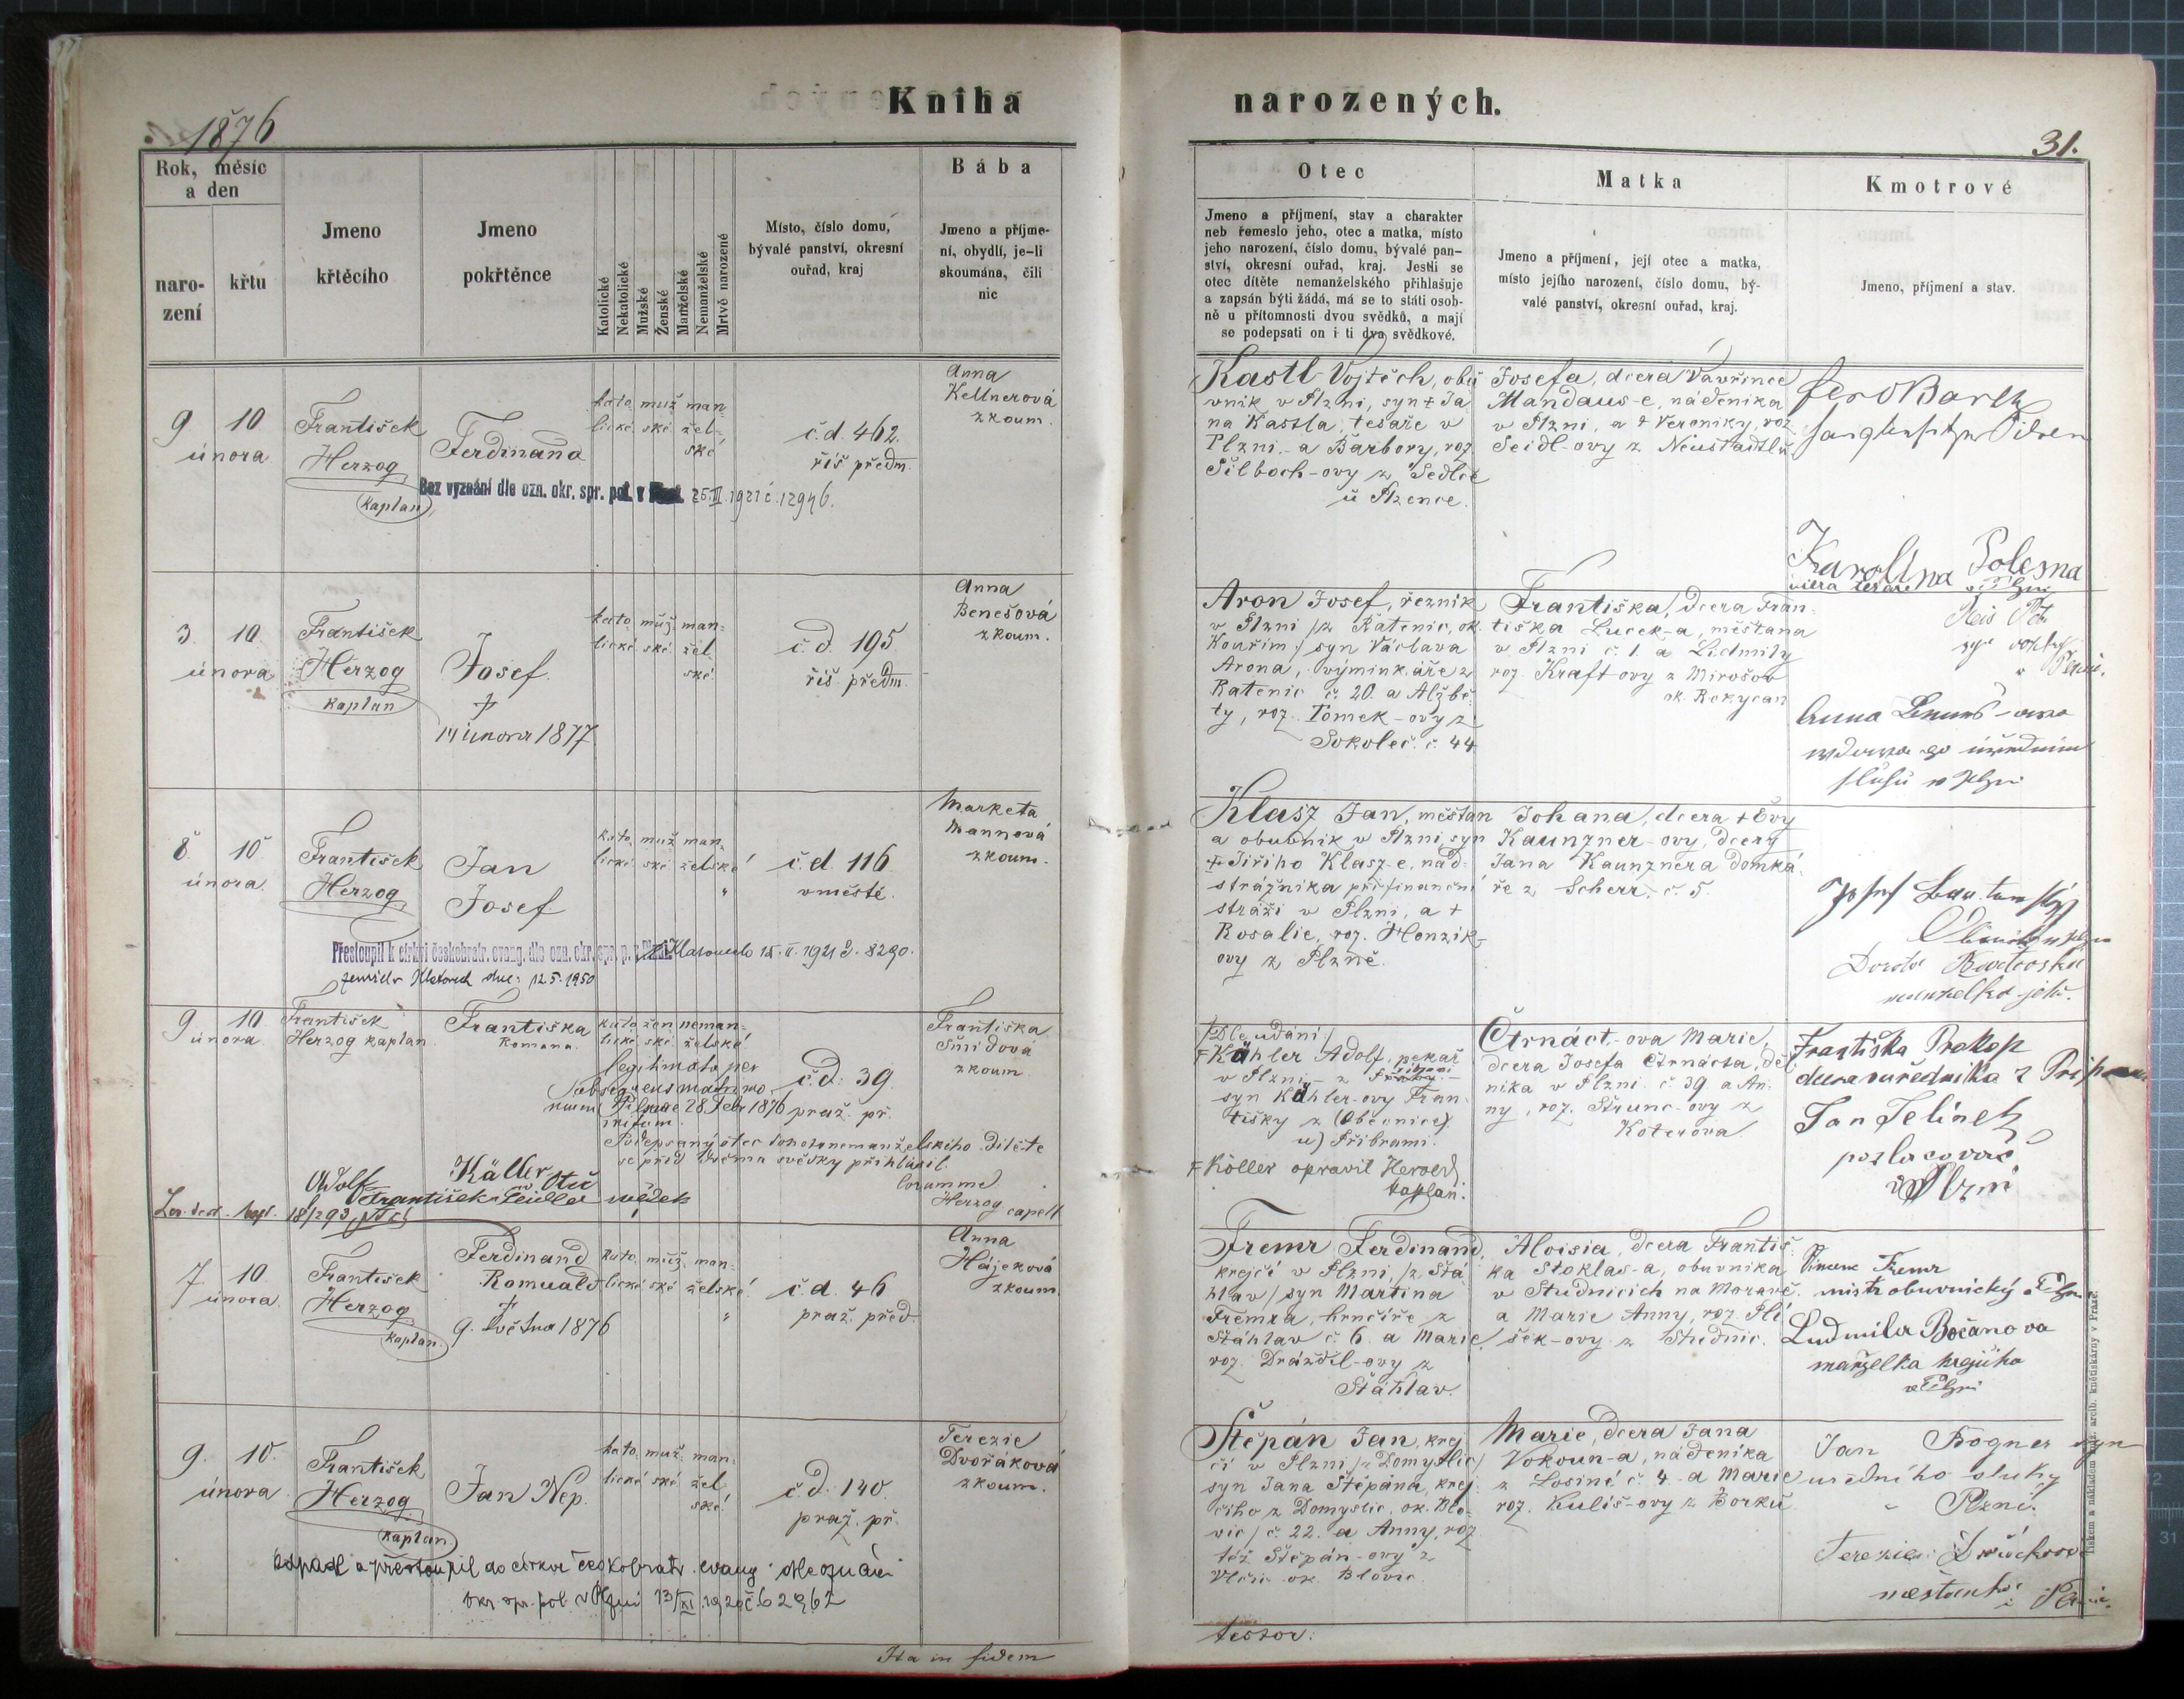 Kniha
narozených.
1876
31.
Rok, měsíc
a den
naro-
zení
křtu
Jmeno
křtěcího
Jmeno
pokřtěnce
Katolické
Nekatolické
Mužské
Ženské
Manželské
Nemanželské
Mrtvě narozené
Místo, číslo domu,
bývalé panství, okresní
ouřad, kraj
Bába
Jmeno a příjme-
ní, obydlí, je-li
skoumána, čili
nic
Otec
Jmeno a příjmení, stav a charakter
neb řemeslo jeho, otec a matka, místo
jeho narození, číslo domu, bývalé pan-
ství, okresní ouřad, kraj. Jestli se
otec dítěte nemanželského přihlašuje
a zapsán býti žádá, má se to státi osob-
ně u přítomnosti dvou svědků, a mají
se podepsati on i ti dva svědkové.
Matka
Jmeno a příjmení, její otec a matka,
místo jejího narození, číslo domu, bý-
valé panství, okresní ouřad, kraj.
Kmotrové
Jmeno, příjmení a stav.
9 10
února
František
Herzog
kaplan
Ferdinand
kato muž man
lické ské žel
ské
č. d. 462.
říš. předm.
Anna
Kellnerová
zkoum.
Bez vyznání dle ozn. okr. spr. pol. v 25 II 1921 č. 12946.
Kastl Vojtěch, obu
vník v Plzni, syn + Ja
na Kastla, tesaře v
Plzni, a Barbory, roz.
Šilboch-ovy z Sedlce
u Plzence.
Josefa, dcera Vavřince
Mandaus-e, nádeníka
v Plzni, a + Veroniky, roz.
Seidl-ovy z Neustadtlu
Karolína Polesna
3. 10.
února
František
Herzog
kaplan
Josef.
+
14 února 1877
kato muž man-
lické ské žel
ské
č. d. 195
říš. předm.
Anna
Benešová
zkoum.
Aron Josef, řezník
v Plzni /z Ratenic, ok.
Kouřim/ syn Václava
Arona, výminkáře z
Ratenic č. 20. a Alžbě
ty, roz. Tomek-ovy z
Sokoleč. č. 44
Františka, dcera Fran-
tiška Lucek-a, měštana
v Plzni č. 1. a Ludmily
roz. Kraft-ovy z Mirošov
ok. Rokycan
Anna
8 10
února
František
Herzog
Jan
Josef
kato muž man
lické ské želské
č. d. 116
v městě.
Marketa
Mannová
zkoum.
Přestoupil k církvi českobratr. evang. dle ozn. okr. spr. p. 15. II. 1921 č. 8290.
zemřel v Klatovech dne: 12. 5. 1950
Klasz Jan, měštan
a obubník v Plzni, syn
+ Jiřího Klasz-e, nad-
strážníka při finanční
stráži v Plzni, a +
Rosalie, roz. Honzik-
ovy z Plzně.
Johana, dcera + Evy
Kaunzner-ovy, dcery
Jana Kaunznera domká-
ře z Scherr. č. 5.
9 10
února
František
Herzog kaplan
Františka
Romana.
kato žen neman-
lické ské želské
legitimata per
subsequens matrimo-
nium Pilsnae 28. Febr 1876
initum.
č. d: 39.
praž. př.
Františka
Šmídová
zkoum
Podepsaný otec tohoto nemanželského dítěte
se před dvěma svědky přihlásil.
Adolf Käller otec
František Seidler svědek
coram me
Herzog capell
/Dle udání/
Kähler Adolf, pekař
v Plzni - z
syn Kähler-ovy Fran-
tišky z (Obecnice)
u) Příbrami.
Köller opravil Herold
kaplan.
Čtrnáct-ova Marie,
dcera Josefa Čtrnácta, děl
níka v Plzni č. 39 a An-
ny, roz. Štrunc-ovy z
Koterova
Františka Prokop
dcera ouředníka z
Jan Jelínek
pozlacovač
v Plzni
7. 10.
února
František
Herzog
kaplan.
Ferdinand
Romuald
+
9. května 1876
kato muž man-
lické ské želské
č. d. 46
praž. před.
Anna
Hájeková
zkoum.
Fremr Ferdinand,
krejčí v Plzni, /z Šťá
hlav/ syn Martina
Fremra, hrnčíře z
Šťáhlav č. 6. a Marie
roz. Dráždil-ovy z
Šťáhlav.
Aloisia, dcera Františ-
ka Stoklas-a, obuvníka
v Studnicích na Moravě.
a Marie Anny, roz. Plí
šek-ovy z Studnic.
Vincenc Fremr
mistr obuvnický v Plzni
Ludmila Bočanova
manželka krejčího
v Plzni
9. 10.
února
František
Herzog
kaplan
Jan Nep.
kato. muž. man-
lické ské žel
ské
č. d. 140
praž. př.
Terezie
Dvořáková
zkoum.
odpadl a přestoupil do církve českobratr. evang. dle oznám.
okr. spr. pol. v Plzni 13/XI 1920 č. 62962
Štěpán Jan, krej
čí v Plzni /z Domyslic/
syn Jana Štěpána, krej-
čího z Domyslic, ok. Blo-
vic/ č. 22. a Anny, roz
též Štěpán-ovy z
Vlčic ok. Blovic
Marie, dcera Jana
Vokoun-a, nádeníka
z Losiné č. 4 a Marie
roz. Kuliš-ovy z Borku
Jan Bogner syn
úředního sluhy
v Plzni.
Terezie Dvořáková
měštanka v Plzni.
Ita in fidem
testor.